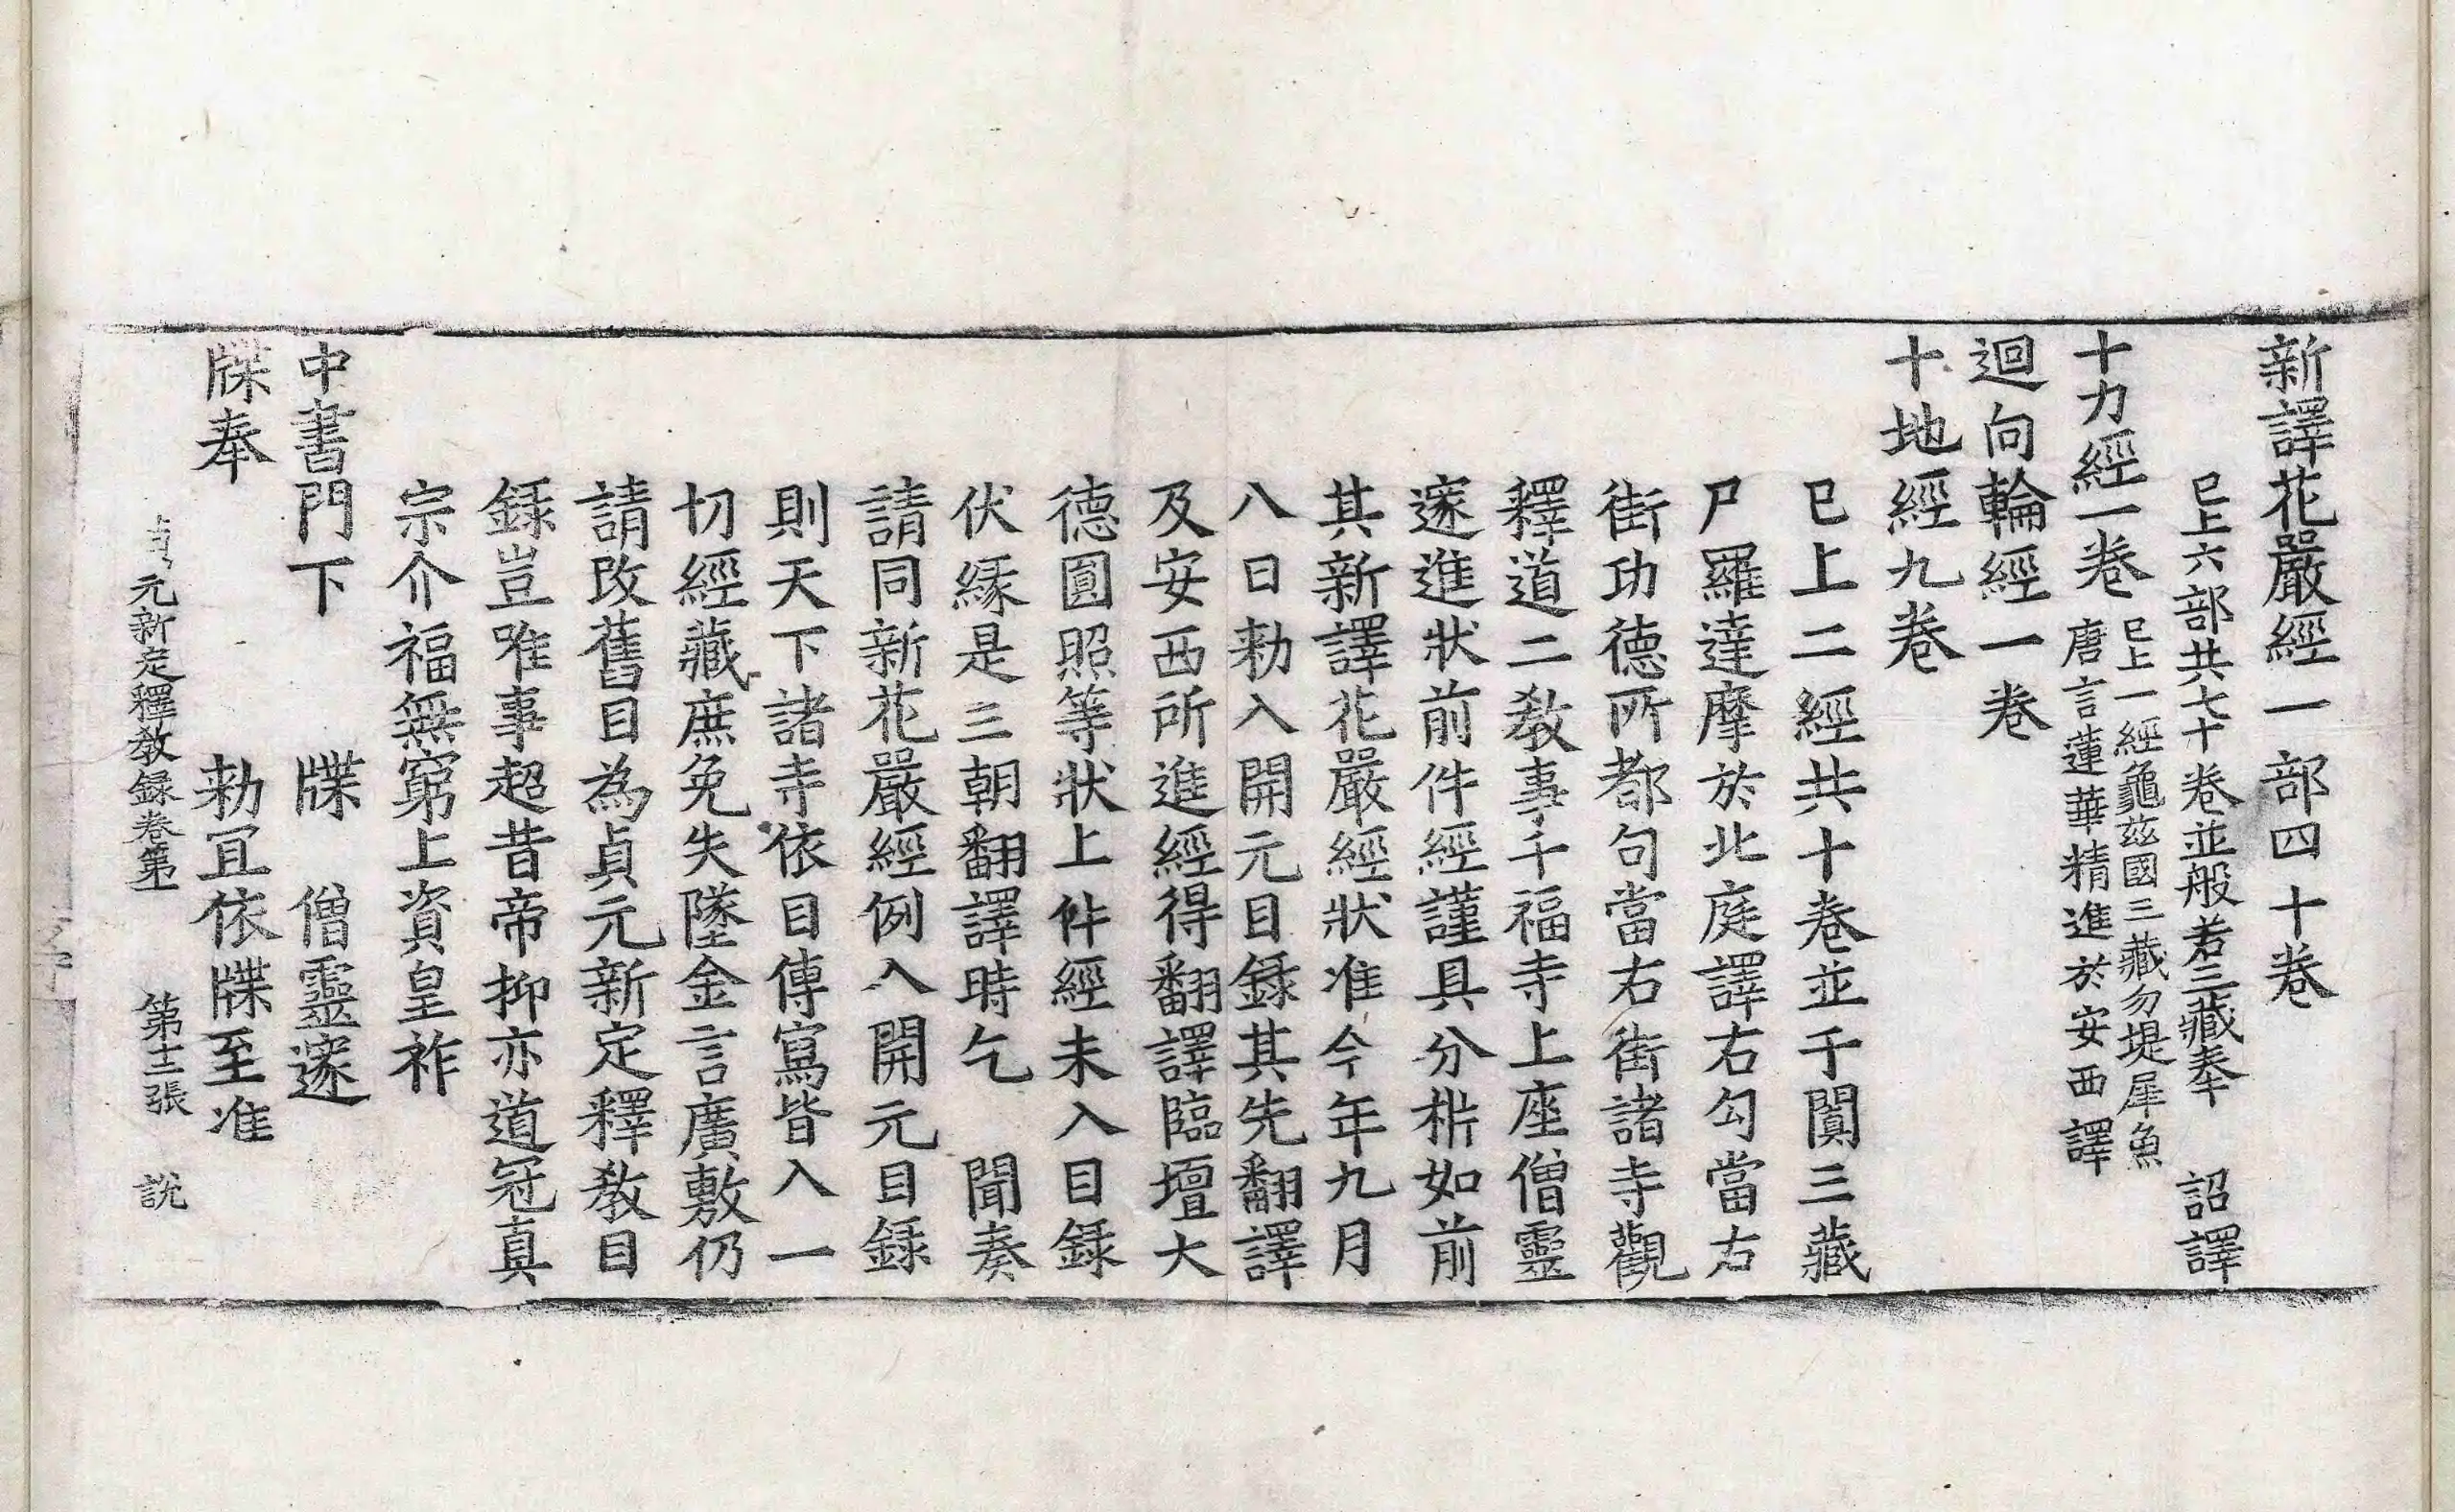 新譯花嚴經一部四十卷
已上六部共七十卷並般若三藏奉　詔譯
十力經一卷
已上一經龜茲國三藏勿堤犀魚
唐言蓮華精進於安西譯
迴向輪經一卷
十地經九卷
已上二經共十卷並于闐三藏
尸羅達摩於北庭譯右勾當右
街功德所都句當右街諸寺觀
釋道二教事千福寺上座僧靈
邃進狀前件經謹具分析如前
其新譯花嚴經狀准今年九月
八日勑入開元目錄其先翻譯
及安西所進經得翻譯臨壇大
德圓照等狀上件經未入目錄
伏緣是三朝翻譯時乞　聞奏
請同新花嚴經例入開元目錄
則天下諸寺依目傳寫皆入一
切經藏庶免失墜金言廣敷仍
請改舊目為貞元新定釋教目
錄豈唯事超昔帝抑亦道冠真
宗介福無窮上資皇祚
中書門下　　牒　僧靈邃
牒奉　　　　勑宜依牒至准
貞元新定釋教錄卷第一　第十三張　說